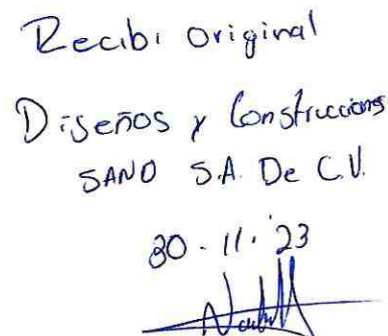 Recibi original
Diseños y Construcciones
SANO S.A. De C.V.
30 - 11. '23